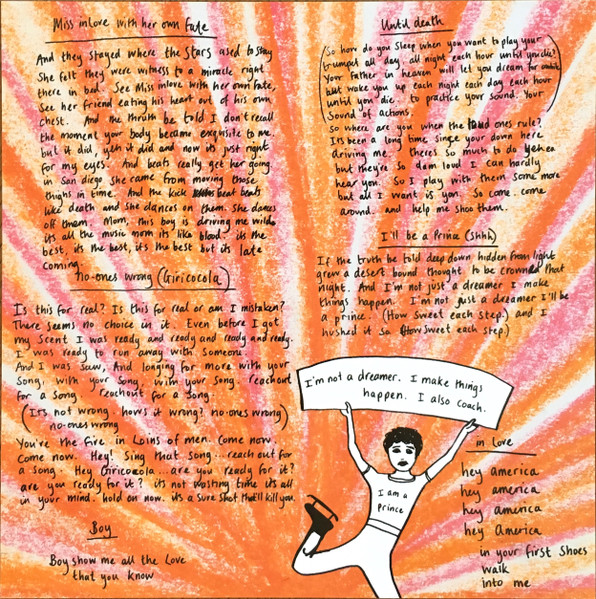 Miss inlove with her own fate
And they stayed where the stars used to stay
She felt they were witness to a miracle right
there in bed. See Miss inlove with her own fate,
See her friend eating his heart out of his own
chest. And the thruth be told I don't recall
the moment your body became exquisite to me.
but it did, yeh it did and now its just right
for my eyes. And beats really get her going.
in San diego she came from moving those
thighs in time. And the kick beat beats
like death and she dances on them. She dances
off them. Mom, this boy is driving me wild.
its all the music mom its like blood. its the
best, its the best, it's the best but its late
coming.
no-ones wrong (Giricocola)
Is this for real? Is this for real or am I mistaken?
There seems no choice in it. Even before I got
my scent I was ready and ready and ready and ready.
I was ready to run away with someone
And I was saw, And longing for more with your
Song, with your song, with your song. reach out
for a song reachout for a song
(It's not wrong. how's it wrong? no-ones wrong)
no-ones wrong
You're the fire in Loins of men. Come now,
come now. Hey! Sing that song... reach out for
a song. Hey Giricocola... are you ready for it?
are you ready for it? its not wasting time its all
in your mind. hold on now. its a sure shot that'll kill you.
Boy
Boy show me all the Love
that you know
Until death
(So how do you sleep when you want to play your
trumpet all day, all night each hour until you die?
Your father in heaven will let you dream for awhile
but wake you up each night each day each hour
until you die to practice your sound. Your
Sound of actions
so where are you when the loud ones rule?
It's been a long time since your down here
driving me. theres so much to do yehea
but they're so dam loud I can hardly
hear you. So I play with them some more
but all I want is you. So come. come
around. and help me shoo them.
I'll be a Prince (Shhh)
If the truth be told deep down hidden from light
grew a desert bound thought to be crowned that
night. And I'm not just a dreamer I make
things happen. I'm not just a dreamer I'll be
a prince. (How sweet each step.) and I
hushed it so (How sweet each step.)
I'm not a dreamer. I make things
happen. I also coach.
I am a
Prince
in Love
hey america
hey america
hey america
hey America
in your first shoes
walk
into me